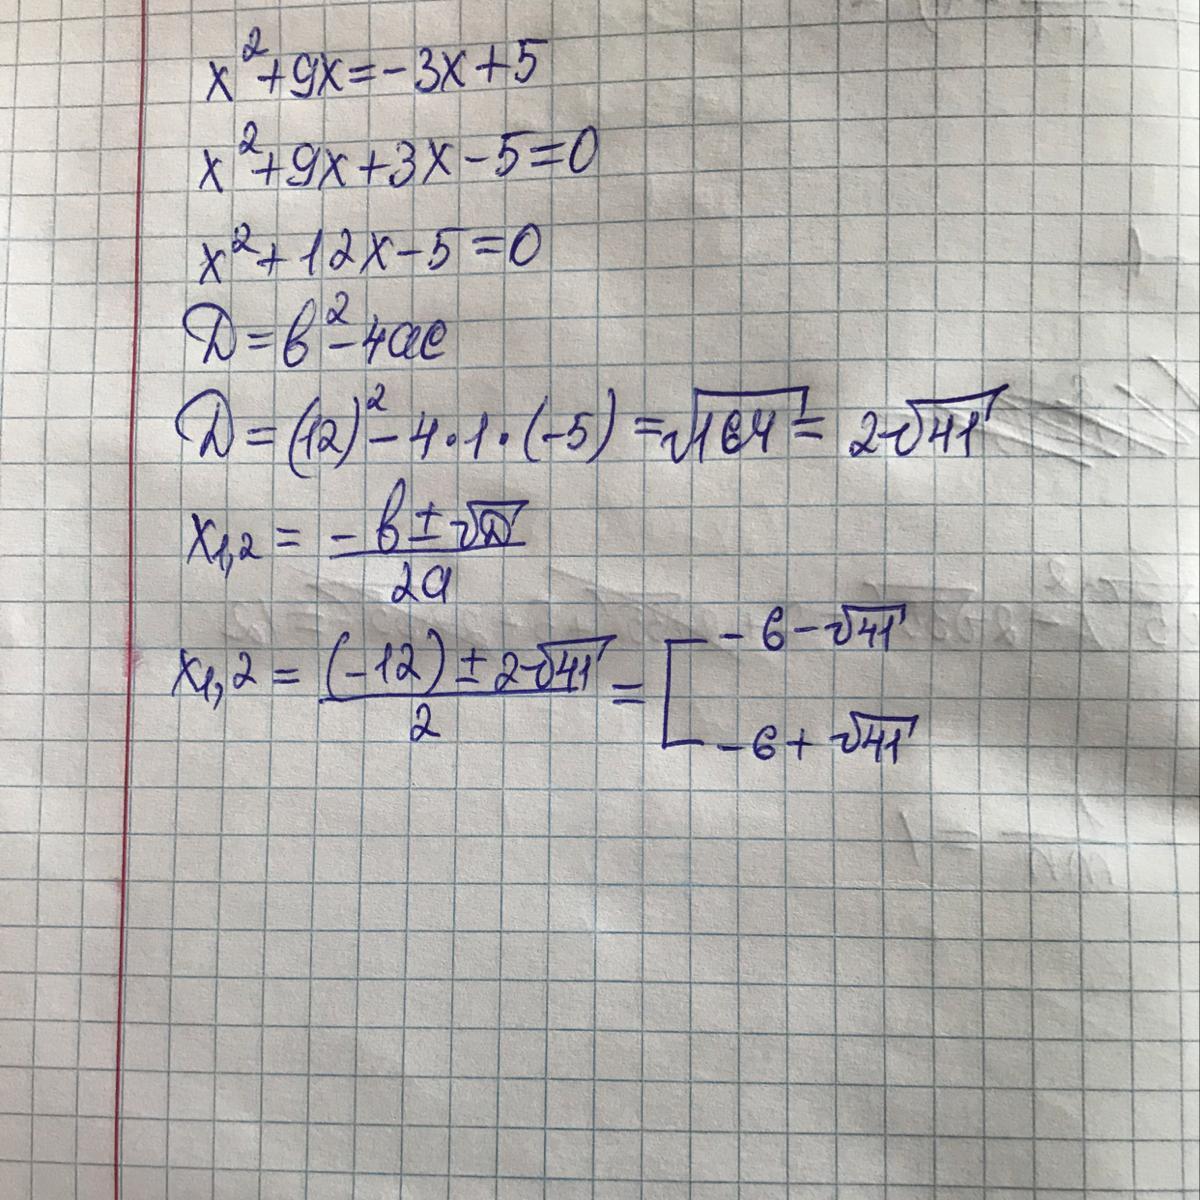 x²+9x=-3x+5
x²+9x+3x-5=0
x²+12x-5=0
D=b²-4ac
D=(12)²-4·1·(-5)=√164=2√41
x₁,₂ = (-b±√D)/2a
x₁,₂ = ((-12)±2√41)/2 = [-6-√41
-6+√41